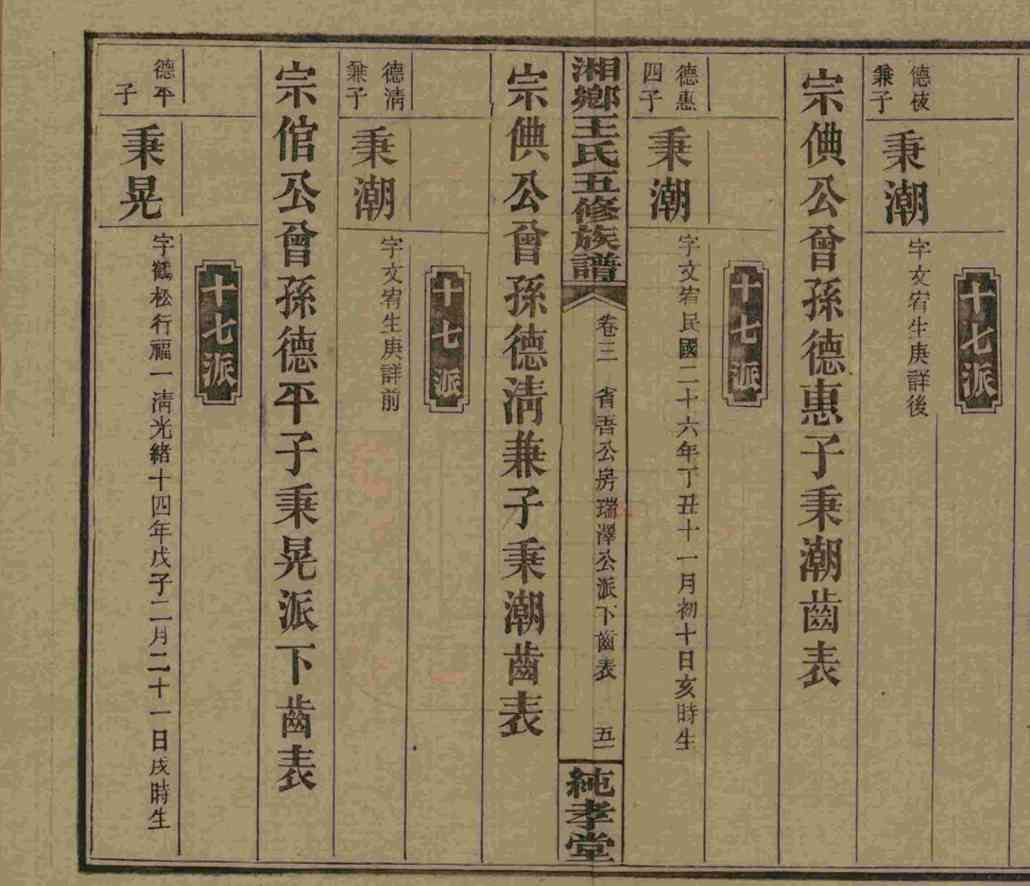 十七派
德棭兼子
秉潮
字文宥生庚詳後
宗倎公曾孫德惠子秉潮齒表
十七派
德惠四子
秉潮
字文宥民國二十六年丁丑十一月初十日亥時生
湘鄉王氏五修族譜
卷三 省吾公房瑞澤公派下齒表 五一
純孝堂
宗倎公曾孫德清兼子秉潮齒表
十七派
德清兼子
秉潮
字文宥生庚詳前
宗倌公曾孫德平子秉晃派下齒表
十七派
德平子
秉晃
字鶴松行福一清光緒十四年戊子二月二十一日戌時生